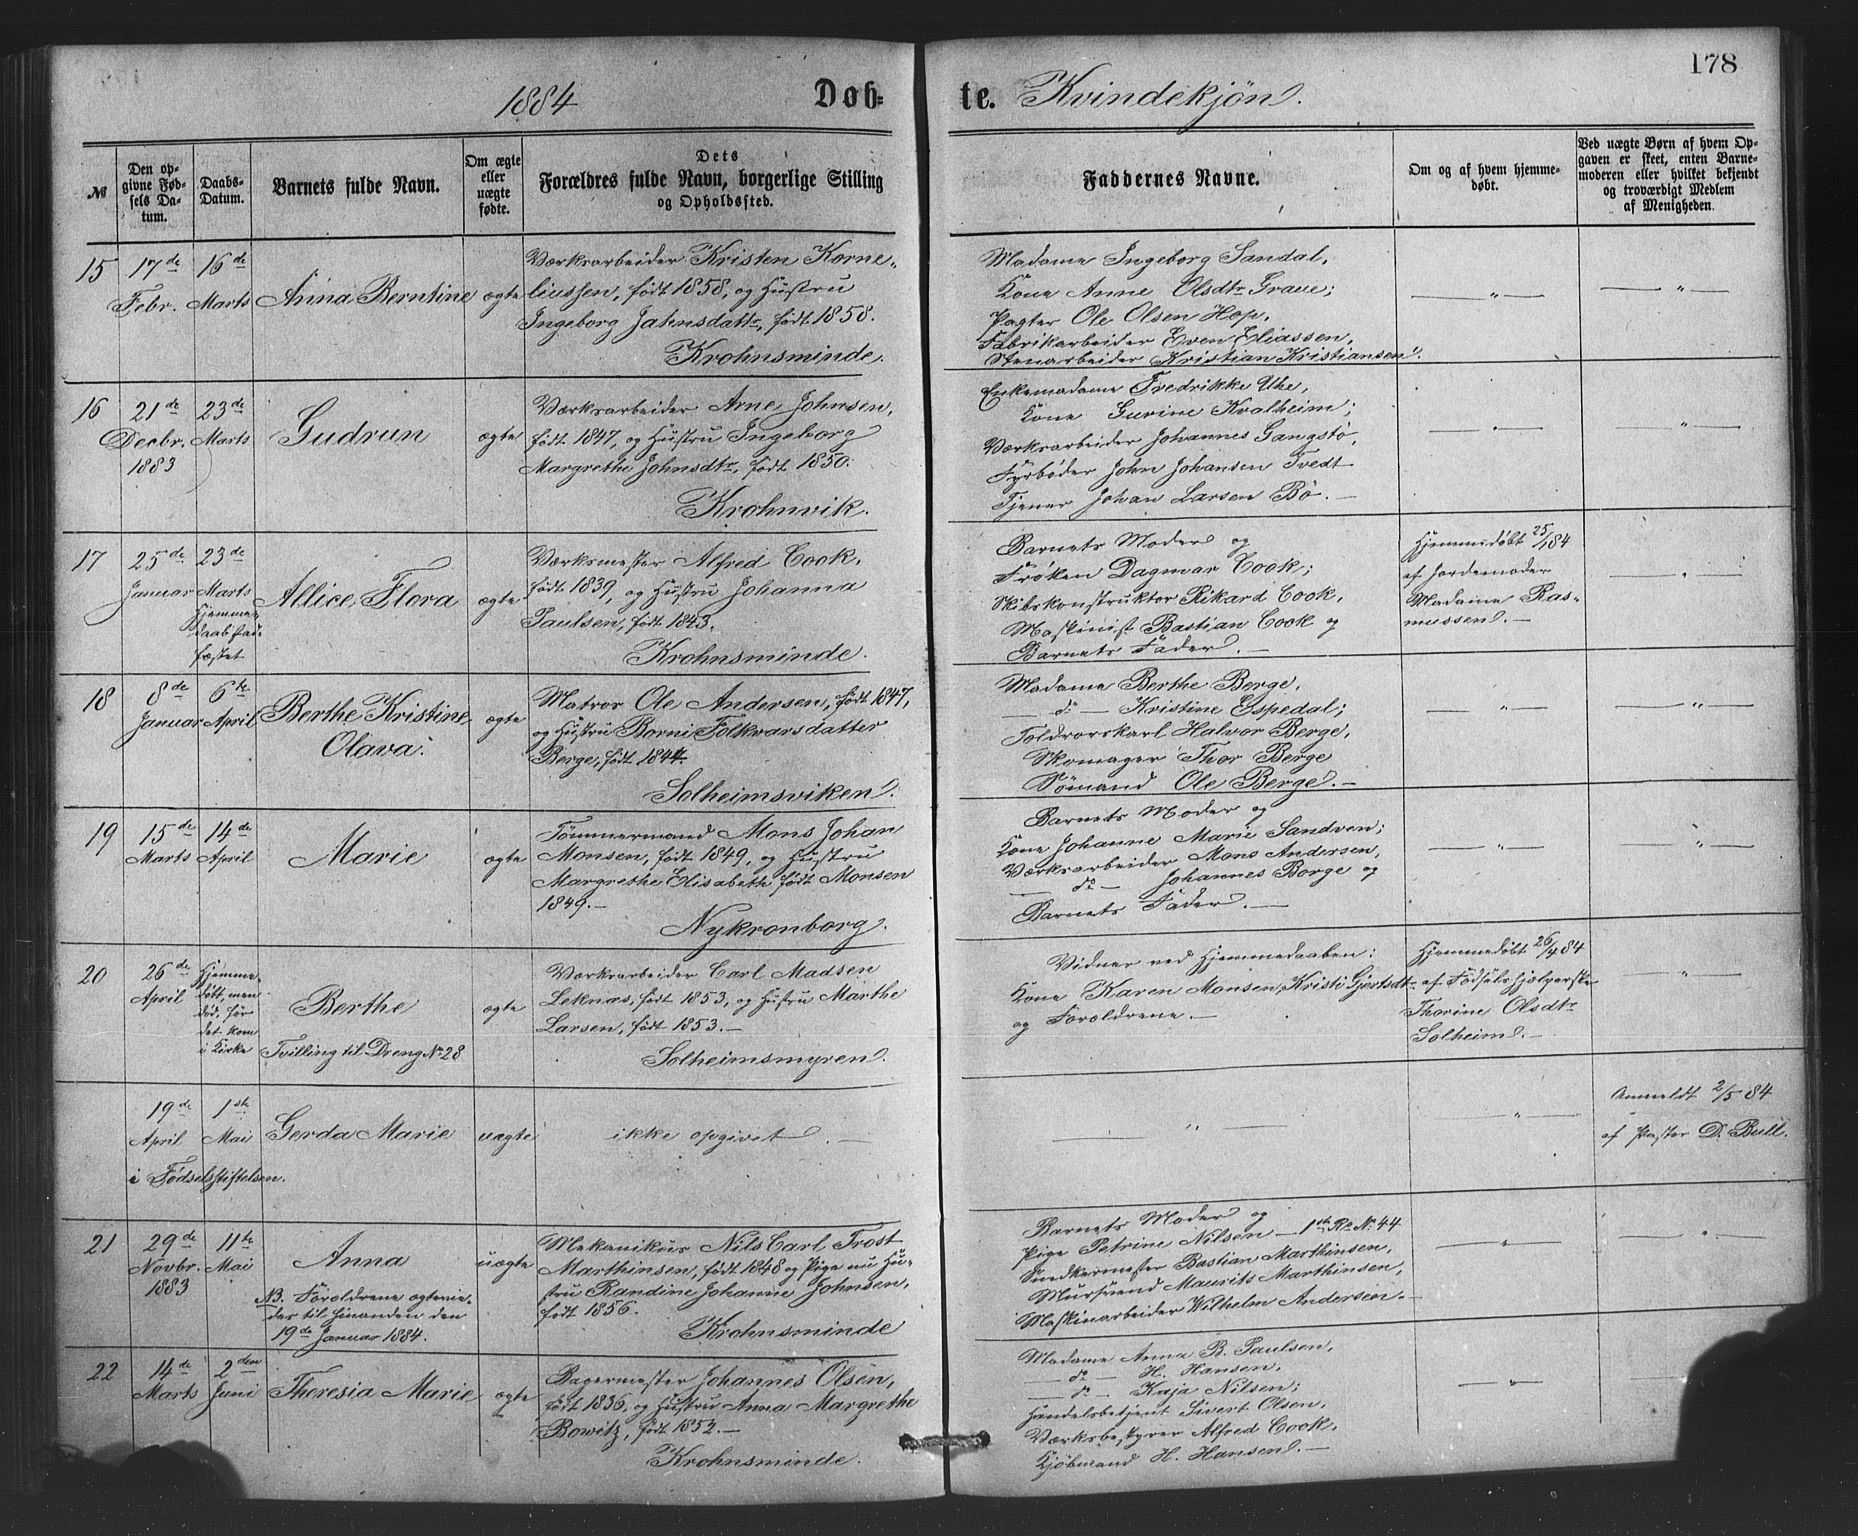 178
1884 Døb= te. Kvindekjøn.
№
Den op-
givne Fød-
sels Da-
tum.
Daabs-
Datum.
Barnets fulde Navn.
Om ægte
eller
uægte
fødte.
Dets
Forældres fulde Navn, borgerlige Stilling
og Opholdssted.
Faddernes Navne.
Om og af hvem hjemme-
døbt.
Ved uægte Børn af hvem Op-
gaven er skeet, enten Barne-
moderen eller hvilket bekjendt
og troværdigt Medlem
af Menigheden.
15
17de
Febr.
16de
Marts
Anna Berntine
ægte
Værksarbeider Kristen Korne-
liussen, født 1858, og Hustru
Ingeborg Jahnsdattr, født 1858.
Krohnsminde.
Madame Ingeborg Sandal,
Kone Anne Olsdtr Grave;
Pagter Ole Olsen Hop,
Fabrikarbeider Even Eliassen,
Stenarbeider Kristian Kristiansen.
— " —
— " —
16
21de
Decbr.
1883
23de
Marts
Gudrun
ægte
Værksarbeider Arne Johnsen,
født 1847, og Hustru Ingeborg
Margrethe Johnsdtr, født 1850.
Krohnvik.
Enkemadame Fredrikke Uhe,
Kone Gurine Kvalheim;
Værksarbeider Johannes Gangstø,
Fyrbøder John Johansen Tvedt
Tjener Johan Larsen Bø. —
— " —
— " —
17
25de
Januar
23de
Marts
Hjemme-
daab stad-
fæstet
Allice Flora
ægte
Værksmester Alfred Cook,
født 1839, og Hustru Johanna
Paulsen, født 1843.
Krohnsminde.
Barnets Moder og
Frøken Dagmar Cook;
Skibskonstruktør Rikard Cook,
Maskinist Bastian Cook og
Barnets Fader. —
Hjemmedøbt 25/1 84
af Jordemoder
Madame Ras-
mussen. —
— " —
18
8de
Januar
6te
April
Berthe Kristine
Olava.
ægte
Matros Ole Andersen, født 1847,
og Hustru Borni Folkvarsdatter
Berge, født 1844
Solheimsviken.
Madame Berthe Berge,
— do — Kristine Espedal;
Toldrorskarl Halvor Berge,
Skomager Thor Berge
Sømand Ole Berge. —
— " —
— " —
19
15de
Marts
14de
April
Marie
ægte
Tømmermand Mons Johan
Monsen, født 1849, og Hustru
Margrethe Elisabeth født Monsen
1849. —
Nykronborg.
Barnets Moder og
Kone Johanne Marie Sandven;
Værksarbeider Mons Andersen,
— do — Johannes Borge og
Barnets Fader. —
— " —
— " —
20
26de
April
Hjemme-
døbt, men
død, før
det kom
i Kirke
Berthe
Tvilling til Dreng № 28
ægte
Værksarbeider Carl Madsen
Leknæs, født 1853, og Hustru Marthe
Larsen, født 1853. —
Solheimsmyren.
Vidner ved Hjemmedaaben:
Kone Karen Monsen, Kristi Gjertsdtr
og Forældrene. —
Hjemmedøbt 26/4 84
af Fødselshjælperske
Thorine Olsdtr
Solheim. —
— " —
19de
April
i Fødselsstiftelsen.
1ste
Mai
Gerda Marie
uægte
ikke opgivet. —
— " —
— " —
Anmeldt 2/5 84
af Pastor D. Bull.
21
29de
Novbr.
1883
11te
Mai
Anna
NB. Forældrene ægtevie-
des til hinanden den
19de Januar 1884.
uægte
Mekanikus Nils Carl Trost
Marthinsen, født 1848 og Pige nu Hu-
stru Randine Johanne Johnsen,
født 1856.
Krohnsminde
Barnets Moder og
Pige Petrine Nilsen — 1ste Ro № 44
Snedkermester Bastian Marthinsen,
Mursvend Maurits Marthinsen,
Maskinarbeider Wilhelm Andersen. —
— " —
— " —
22
14de
Marts
2den
Juni
Theresia Marie
ægte
Bagermester Johannes Olsen,
født 1836, og Hustru Anna Margrethe
Bowitz, født 1852. —
Krohnsminde.
Madame Anna B. Paulsen,
— do — H. Hansen,
— do — Kaja Nilsen;
Handelsbetjent Sivert Olsen,
Værksbestyrer Alfred Cook,
Kjøbmand H. Hansen. —
— " —